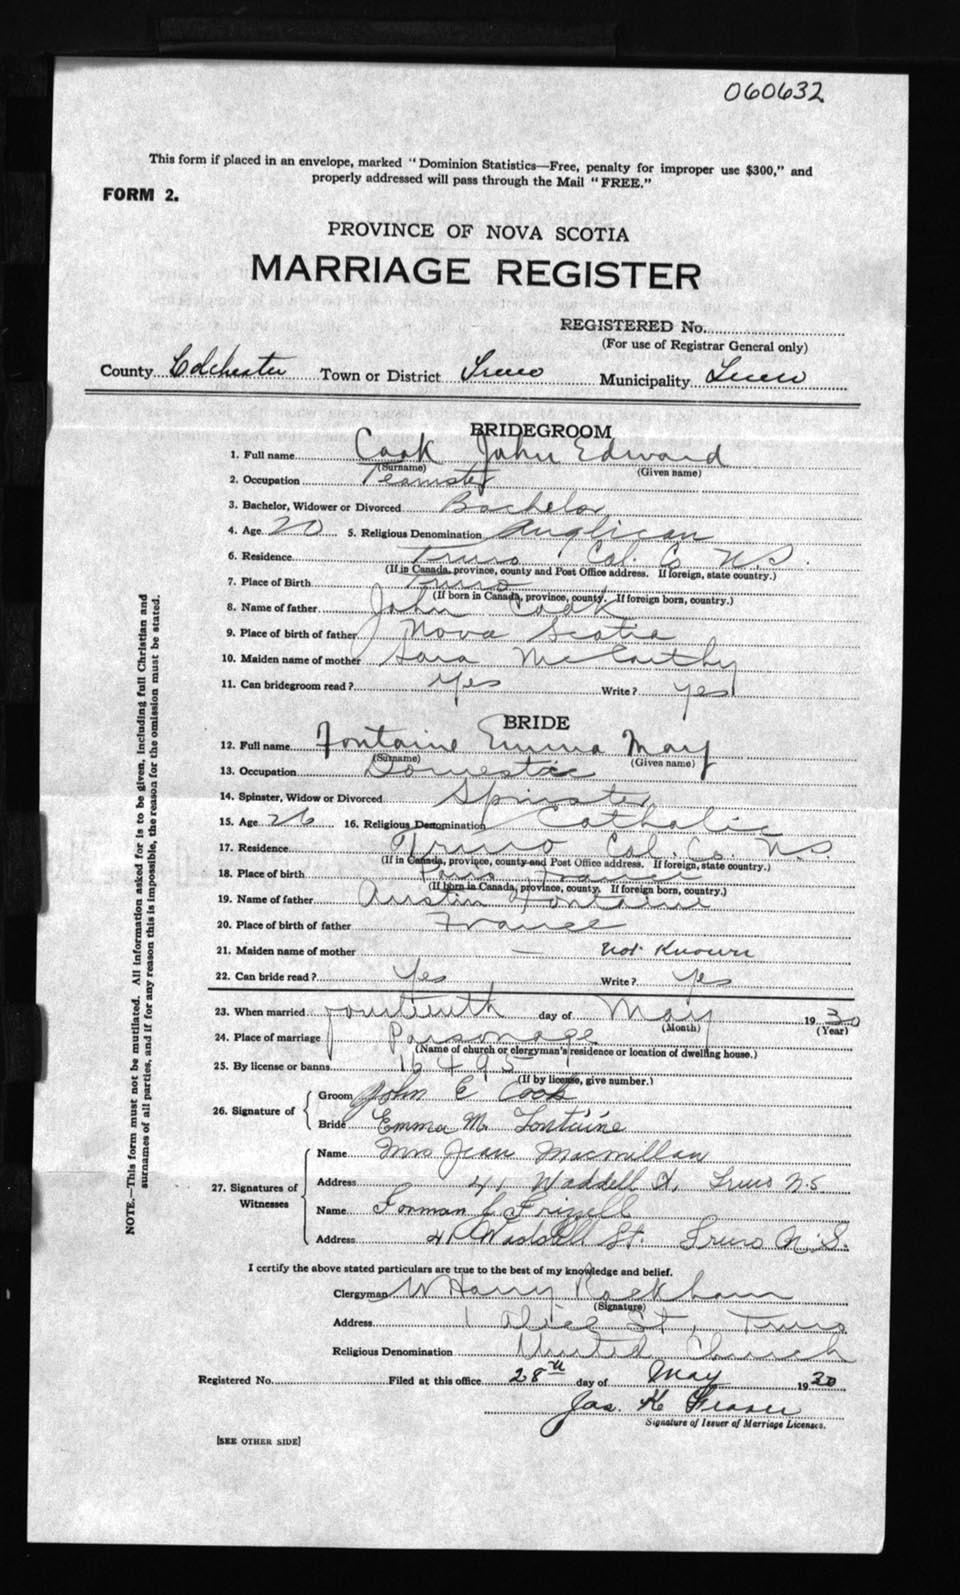 060632
This form if placed in an envelope, marked "Dominion Statistics—Free, penalty for improper use $300," and
properly addressed will pass through the Mail "FREE."
FORM 2.
PROVINCE OF NOVA SCOTIA
MARRIAGE REGISTER
REGISTERED No.
(For use of Registrar General only)
County Colchester Town or District Truro Municipality Truro
BRIDEGROOM
1. Full name Cook John Edward
(Surname) (Given name)
2. Occupation Teamster
3. Bachelor, Widower or Divorced Bachelor
4. Age 20 5. Religious Denomination Anglican
6. Residence Truro Col. Co N.S.
(If in Canada, province, county and Post Office address. If foreign, state country.)
7. Place of Birth Truro
(If born in Canada, province, county. If foreign born, country.)
8. Name of father John Cook
9. Place of birth of father Nova Scotia
10. Maiden name of mother Sara McCarthy
11. Can bridegroom read? Yes Write? yes
BRIDE
12. Full name Fontaine Emma May
(Surname) (Given name)
13. Occupation Domestic
14. Spinster, Widow or Divorced Spinster
15. Age 26 16. Religious Denomination Catholic
17. Residence Truro Col. Co. N.S.
(If in Canada, province, county and Post Office address. If foreign, state country.)
18. Place of birth Paris France
(If born in Canada, province, county. If foreign born, country.)
19. Name of father Austin Fontaine
20. Place of birth of father France
21. Maiden name of mother — not Known
22. Can bride read? Yes Write? Yes
23. When married fourteenth day of May 1930
(Month) (Year)
24. Place of marriage Parsonage
(Name of church or clergyman's residence or location of dwelling house.)
25. By license or banns 16495
(If by license, give number.)
26. Signature of
Groom John E Cook
Bride Emma M. Fontaine
27. Signatures of Witnesses
Name Mrs Jean Macmillan
Address 41 Waddell St, Truro N.S
Name Forman J Frizell
Address 41 Waddell St. Truro N.S.
I certify the above stated particulars are true to the best of my knowledge and belief.
Clergyman W Harry Rackham
(Signature)
Address 1 Alice St, Truro
Religious Denomination United Church
Registered No. Filed at this office 28th day of May 1930
Jas. K Fraser
Signature of Issuer of Marriage Licenses.
[SEE OTHER SIDE]
NOTE.—This form must not be mutilated. All information asked for is to be given, including full Christian and
surnames of all parties, and if for any reason this is impossible, the reason for the omission must be stated.